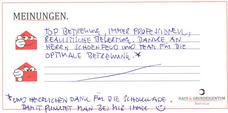 MEINUNGEN.
TOP BETREUUNG, IMMER PROFESSIONELL,
REALISTISCHE BEWERTUNG. DANKE AN
HERRN SCHOENFELD UND TEAM FÜR DIE
OPTIMALE BETREUUNG. *
* UND HERZLICHEN DANK FÜR DIE SCHOKOLADE.
DAMIT PUNKTET MAN BEI MIR IMMER
HAUS & GRUNDEIGENTUM